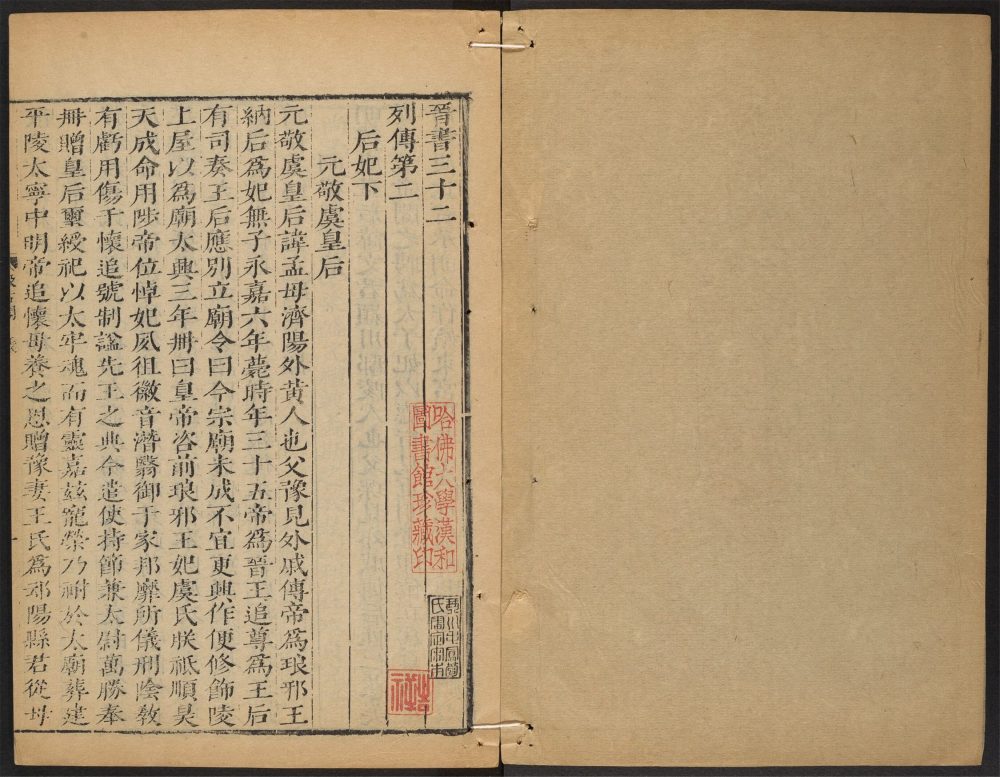 晉書三十二
列傳第二
后妃下
元敬虞皇后
元敬虞皇后諱孟母濟陽外黃人也父豫見外戚傳帝爲琅邪王
納后爲妃無子永嘉六年薨時年三十五帝爲晉王追尊爲王后
有司奏王后應別立廟令曰今宗廟未成不宜更興作便修飾陵
上屋以爲廟太興三年冊曰皇帝咨前琅邪王妃虞氏朕祗順昊
天成命用陟帝位悼妃夙徂徽音潛翳御于家邦靡所儀刑陰教
有虧用傷于懷追號制謚先王之典今遣使持節兼太尉萬勝奉
冊贈皇后璽綬祀以太牢魂而有靈嘉茲寵榮乃祔於太廟葬建
平陵太寧中明帝追懷母養之恩贈豫妻王氏爲邧陽縣君從母
哈佛大學漢和
圖書館珍藏印